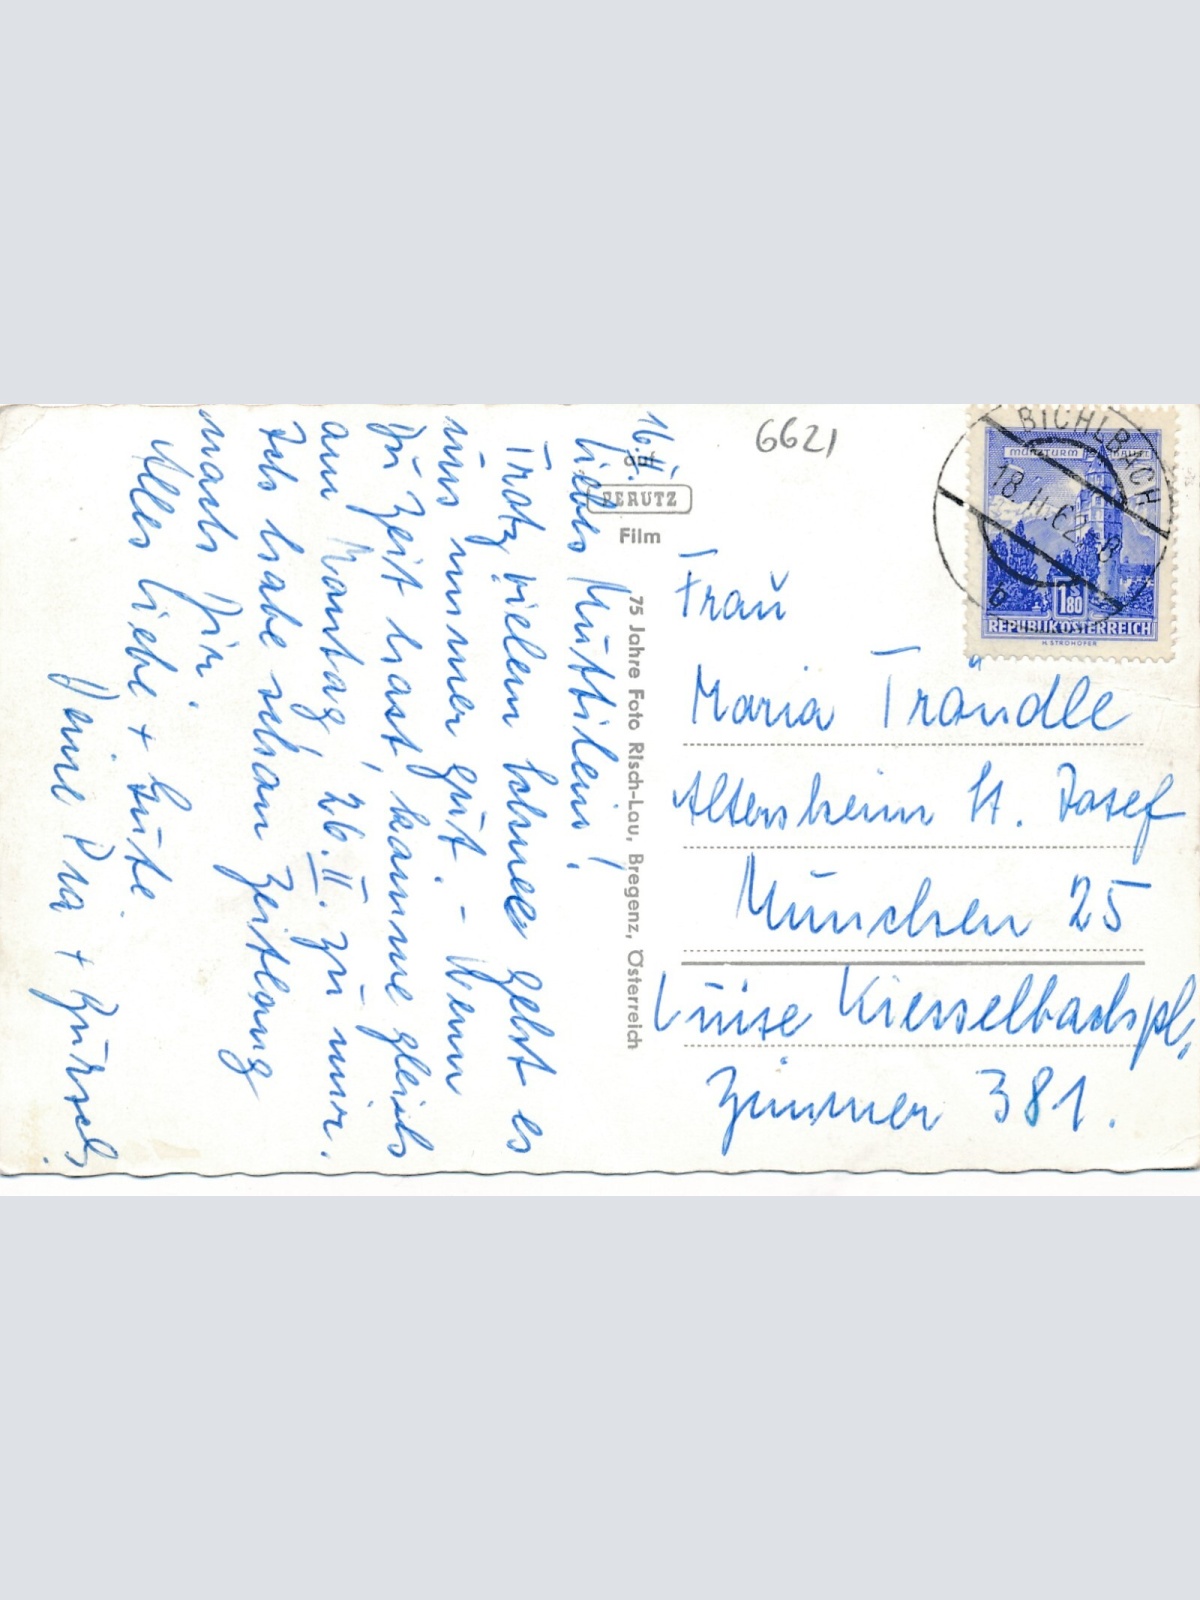 16.II.
Liebes Muttilein!
Trotz vielem Schnee geht es
uns immer gut. – Wenn
Du Zeit hast, komme gleich
am Montag, 26.II. zu mir.
Ich habe schon Zeitlang
nach Dir.
Alles Liebe + Gute.
Deine Pia +
6621
auf
PERUTZ
Film
75 Jahre Foto Risch-Lau, Bregenz, Österreich
BICHLBACH
18.II.62-8
MÜNZTURM
1.80
S
REPUBLIK ÖSTERREICH
H. STROHOFER
Frau
Maria Trändle
Altersheim St. Josef
München 25
Luise Kiesselbachpl.
Zimmer 381.